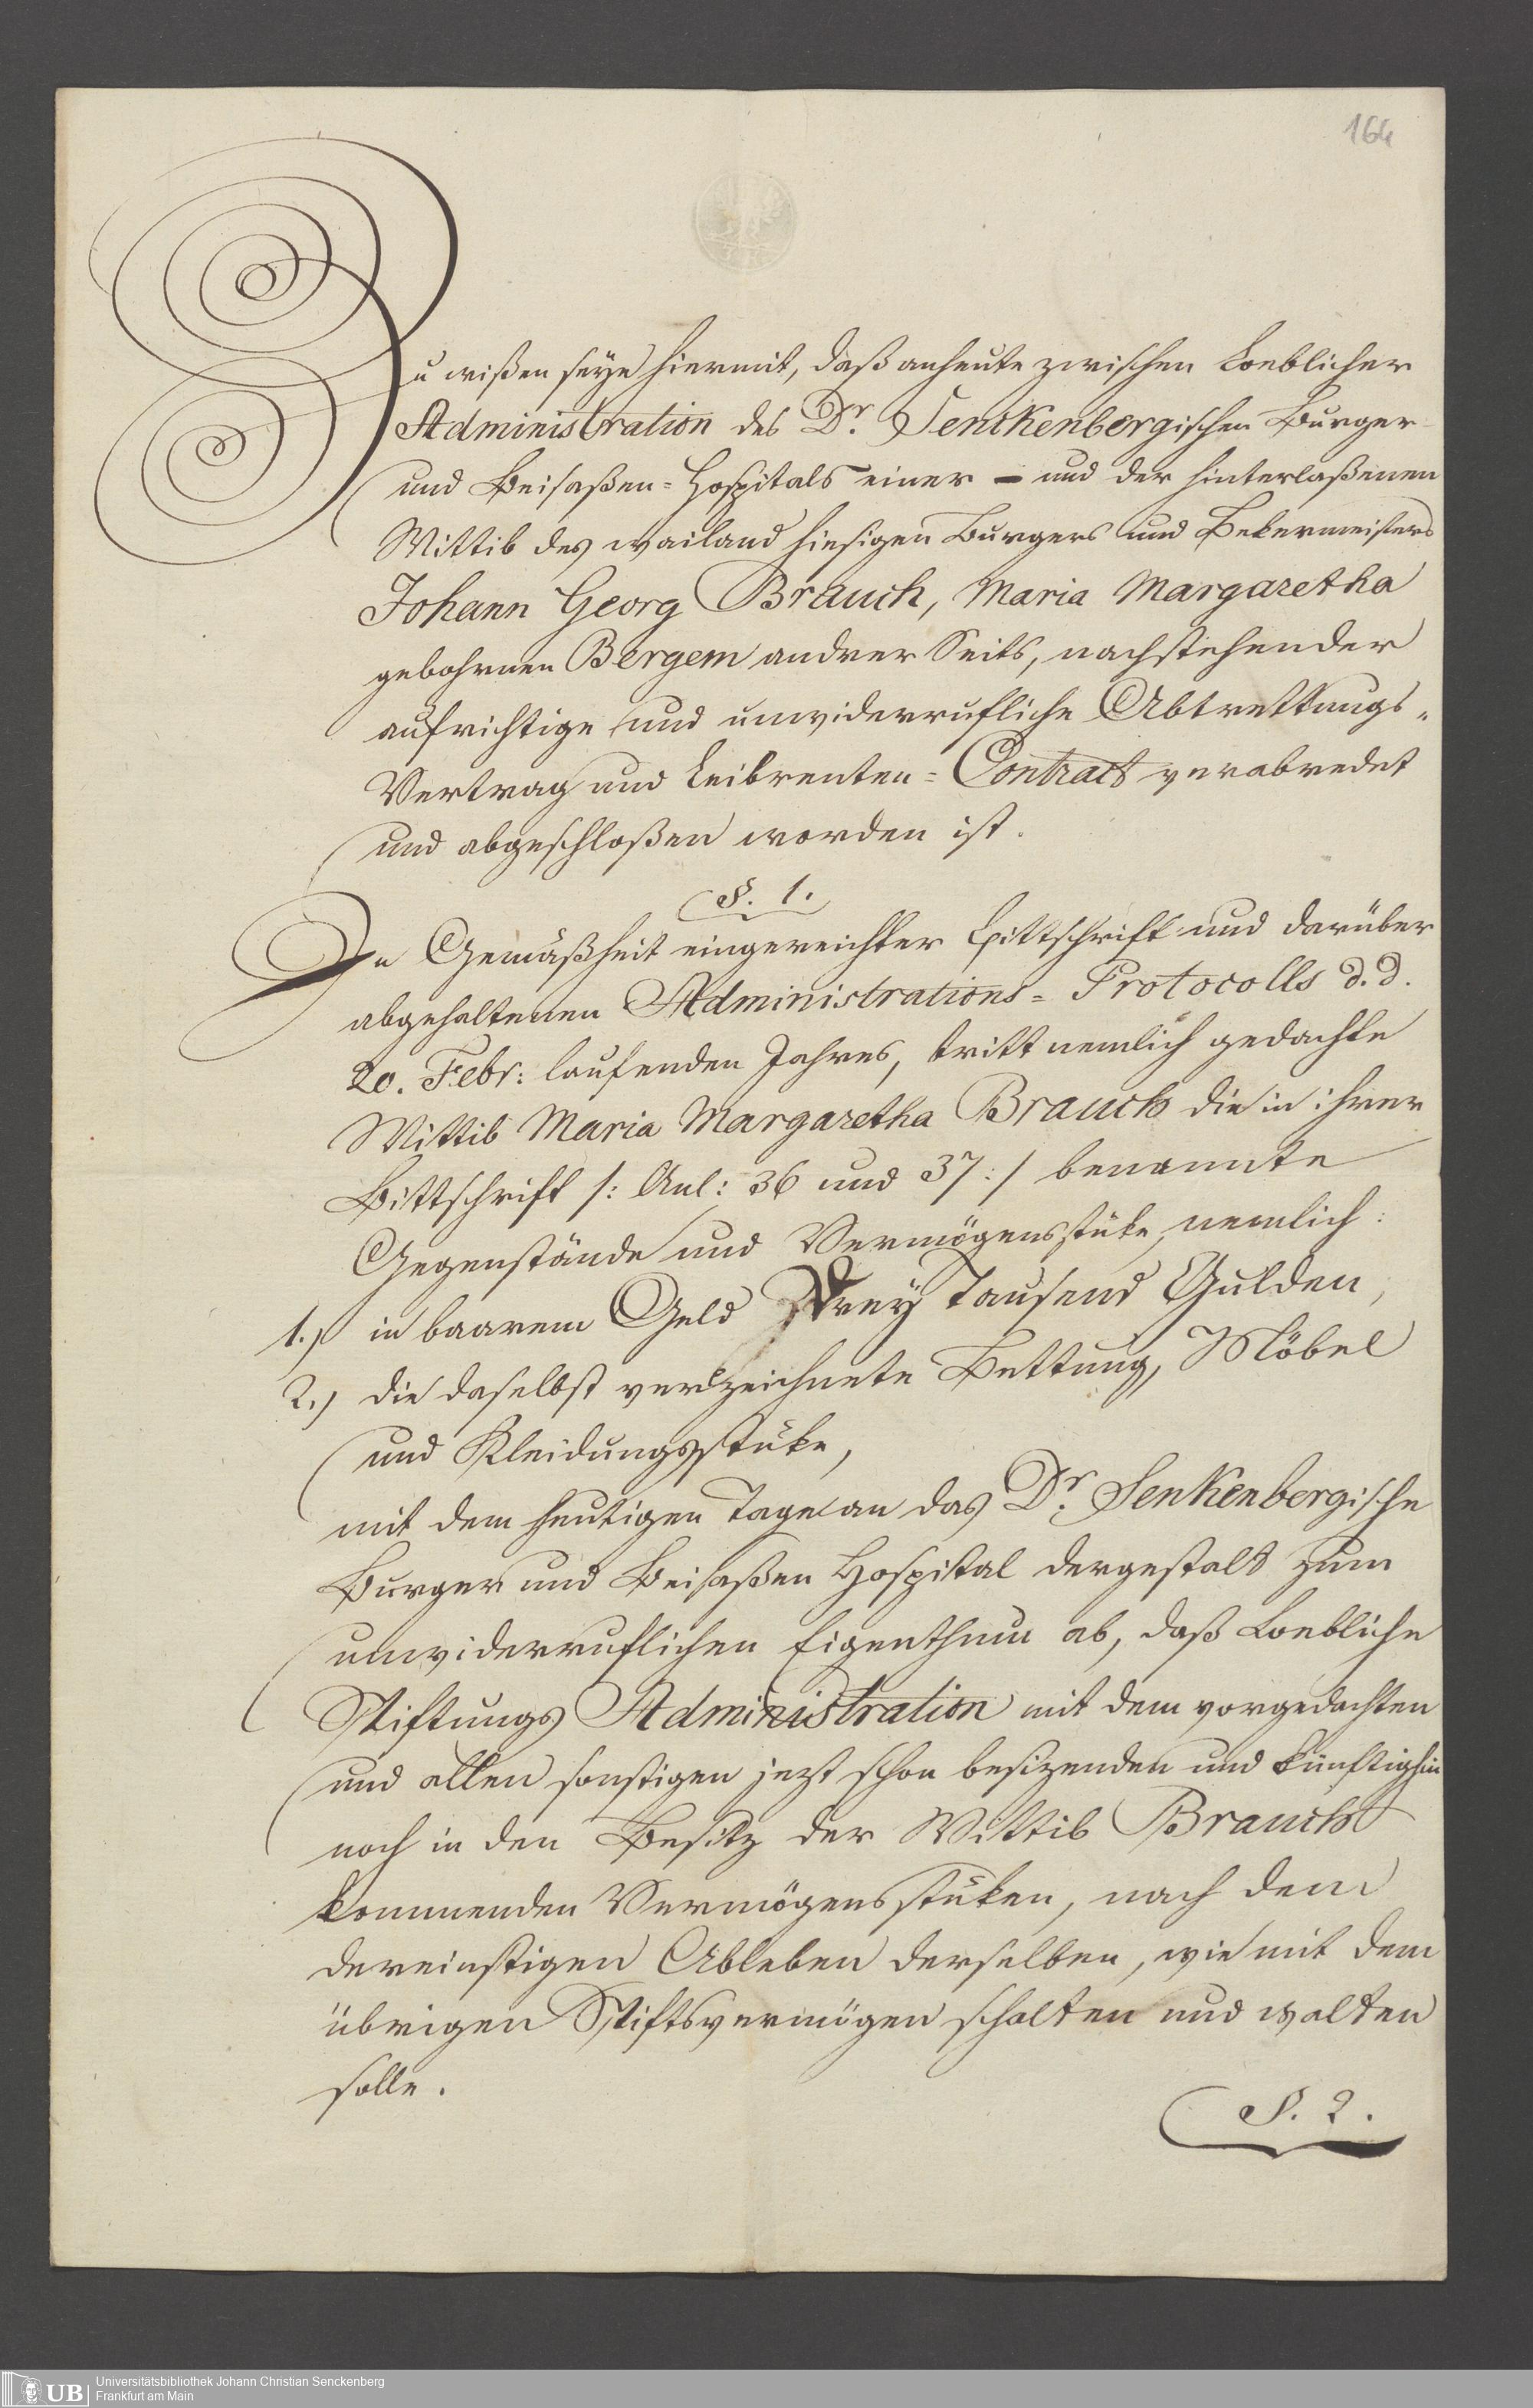 164
Zu wißen seye hiermit, daß anheute zwischen Loeblicher
Administration des Dr. Senckenbergischen Burger-
und Beisaßen-Hospitals einer - und der hinterlaßenen
Wittib des wailand hiesigen Burgers und Bekermeisters
Johann Georg Brauch, Maria Margaretha
gebohrnen Bergem andrer Seits, nachstehender
aufrichtige und unwiderrufliche Abtrettungs-
Vertrag und Leibrenten-Contract verabredet
und abgeschloßen worden ist.
§. 1.
In Gemäßheit eingereichter Bittschrift und darüber
abgehaltenen Administrations-Protocolls d. d.
20. Febr: laufenden Jahres, tritt nemlich gedachte
Wittib Maria Margaretha Brauch die in ihrer
Bittschrift /: Anl: 36 und 37 :/ benannte
Gegenstände und Vermögensstüke, nemlich:
1.) in baarem Geld Drey Tausend Gulden,
2.) die daselbst verzeichnete Bettung, Möbel
und Kleidungsstüke,
mit dem heutigen Tage an das Dr. Senkenbergische
Burger und Beisaßen Hospital dergestalt zum
unwiderruflichen Eigenthum ab, daß Loebliche
Stiftungs Administration mit dem vorgedachten
und allen sonstigen jezt schon besizenden und künftighin
noch in den Besitz der Wittib Brauch
kommenden Vermögensstüken, nach dem
dereinstigen Ableben derselben, wie mit dem
übrigen Stiftsvermögen schalten und walten
solle.
§. 2.
UB
Universitätsbibliothek Johann Christian Senckenberg
Frankfurt am Main